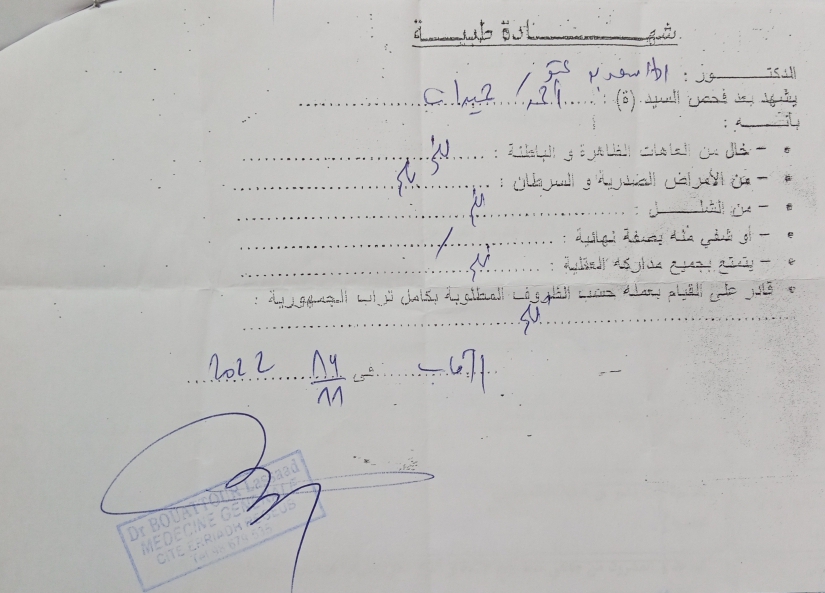 شهـــــادة طبيـــة
الدكتـــــور :
يشهد بعد فحص السيد (ة) :
بأنـــه :
- خال من العاهات الظاهرة و الباطنة : نعم
- من الأمراض الصدرية و السرطان : نعم
- من الشلـــل : نعم
- أو شفي منه بصفة نهائية : /
- يتمتع بجميع مداركه العقلية : نعم
قادر على القيام بعمله حسب الظروف المطلوبة بكامل تراب الجمهورية :
نعم
في 14/11 2022
Dr BOUATTOUR Lassaad
MEDECINE GENERALE
CITE ERRIADH